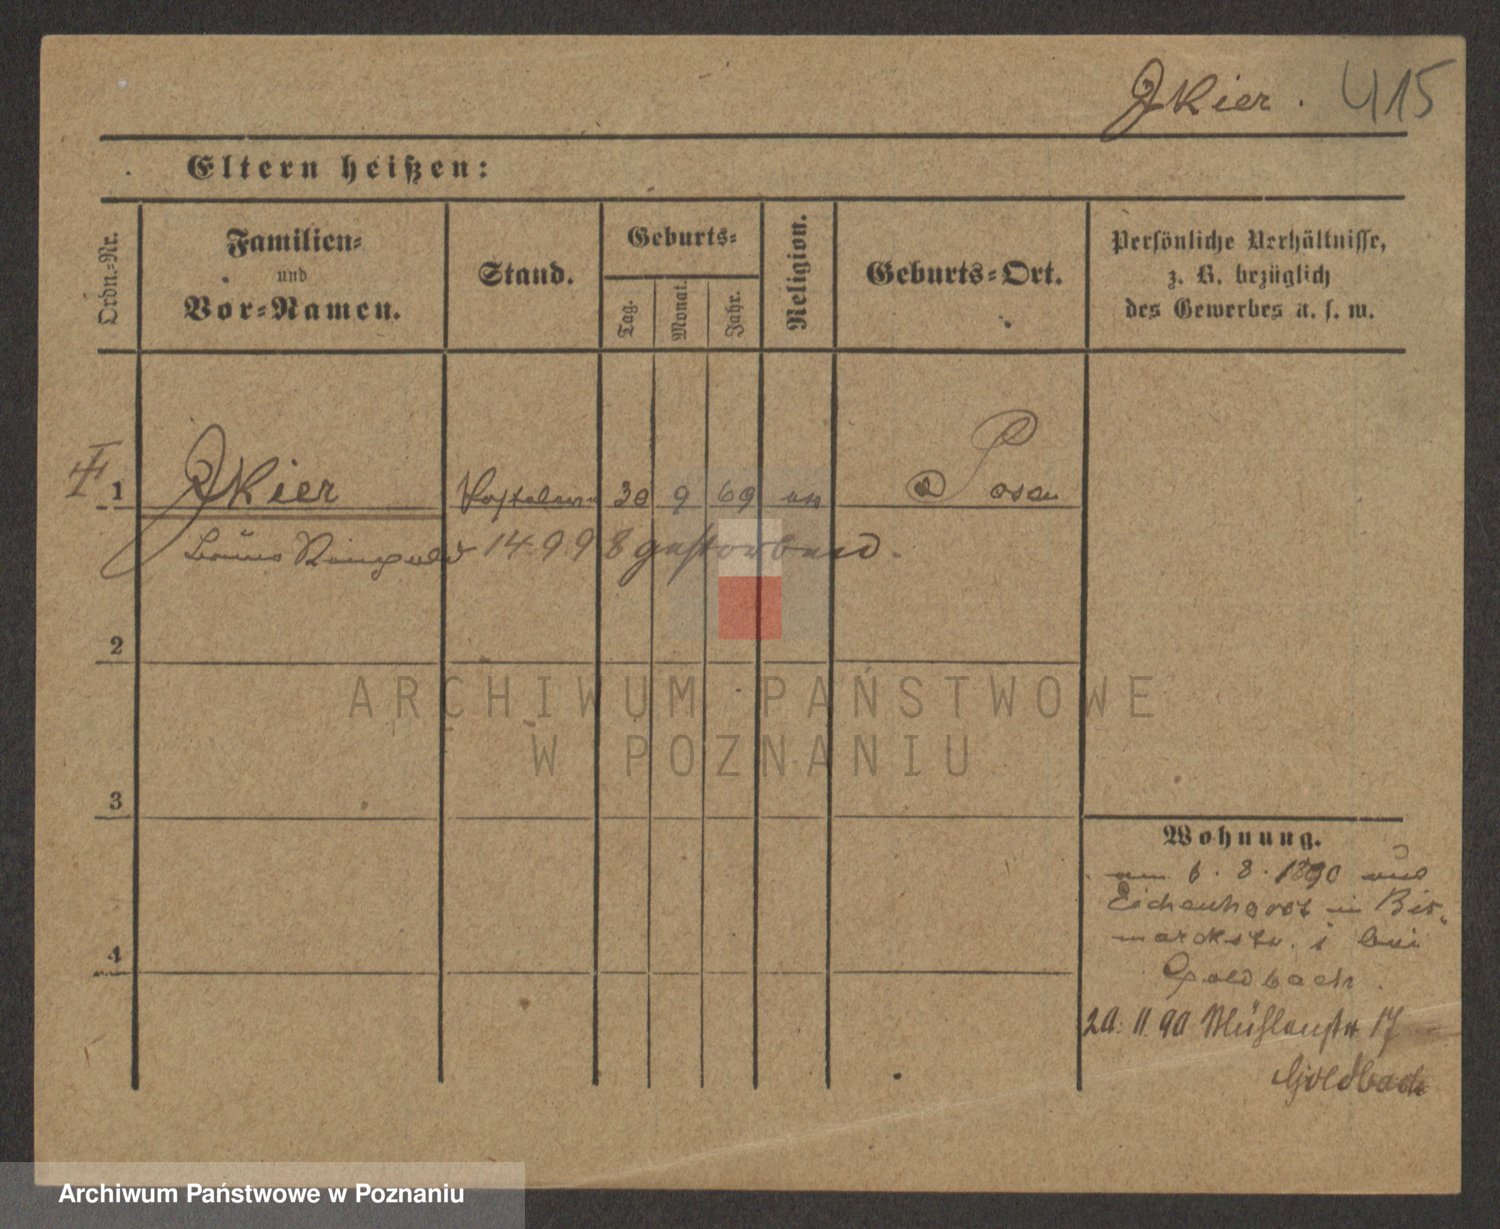 Zkier. 415
Eltern heißen:
Ordn.-Nr.
Familien-
und
Vor-Namen.
Stand.
Geburts-
Tag.
Monat.
Jahr.
Religion.
Geburts-Ort.
Persönliche Verhältnisse,
z. B. bezüglich
des Gewerbes u. s. w.
1 30 9 69 Posen
14 9 98 gestorben.
2
3
4
Wohnung.
6. 8. 1890
Eichenhorst in Bis-
marckstr. 1 bei
Goldbach.
20. 11. 90 Mühlenstr 17
Goldbach
ARCHIWUM PAŃSTWOWE
W POZNANIU
Archiwum Państwowe w Poznaniu